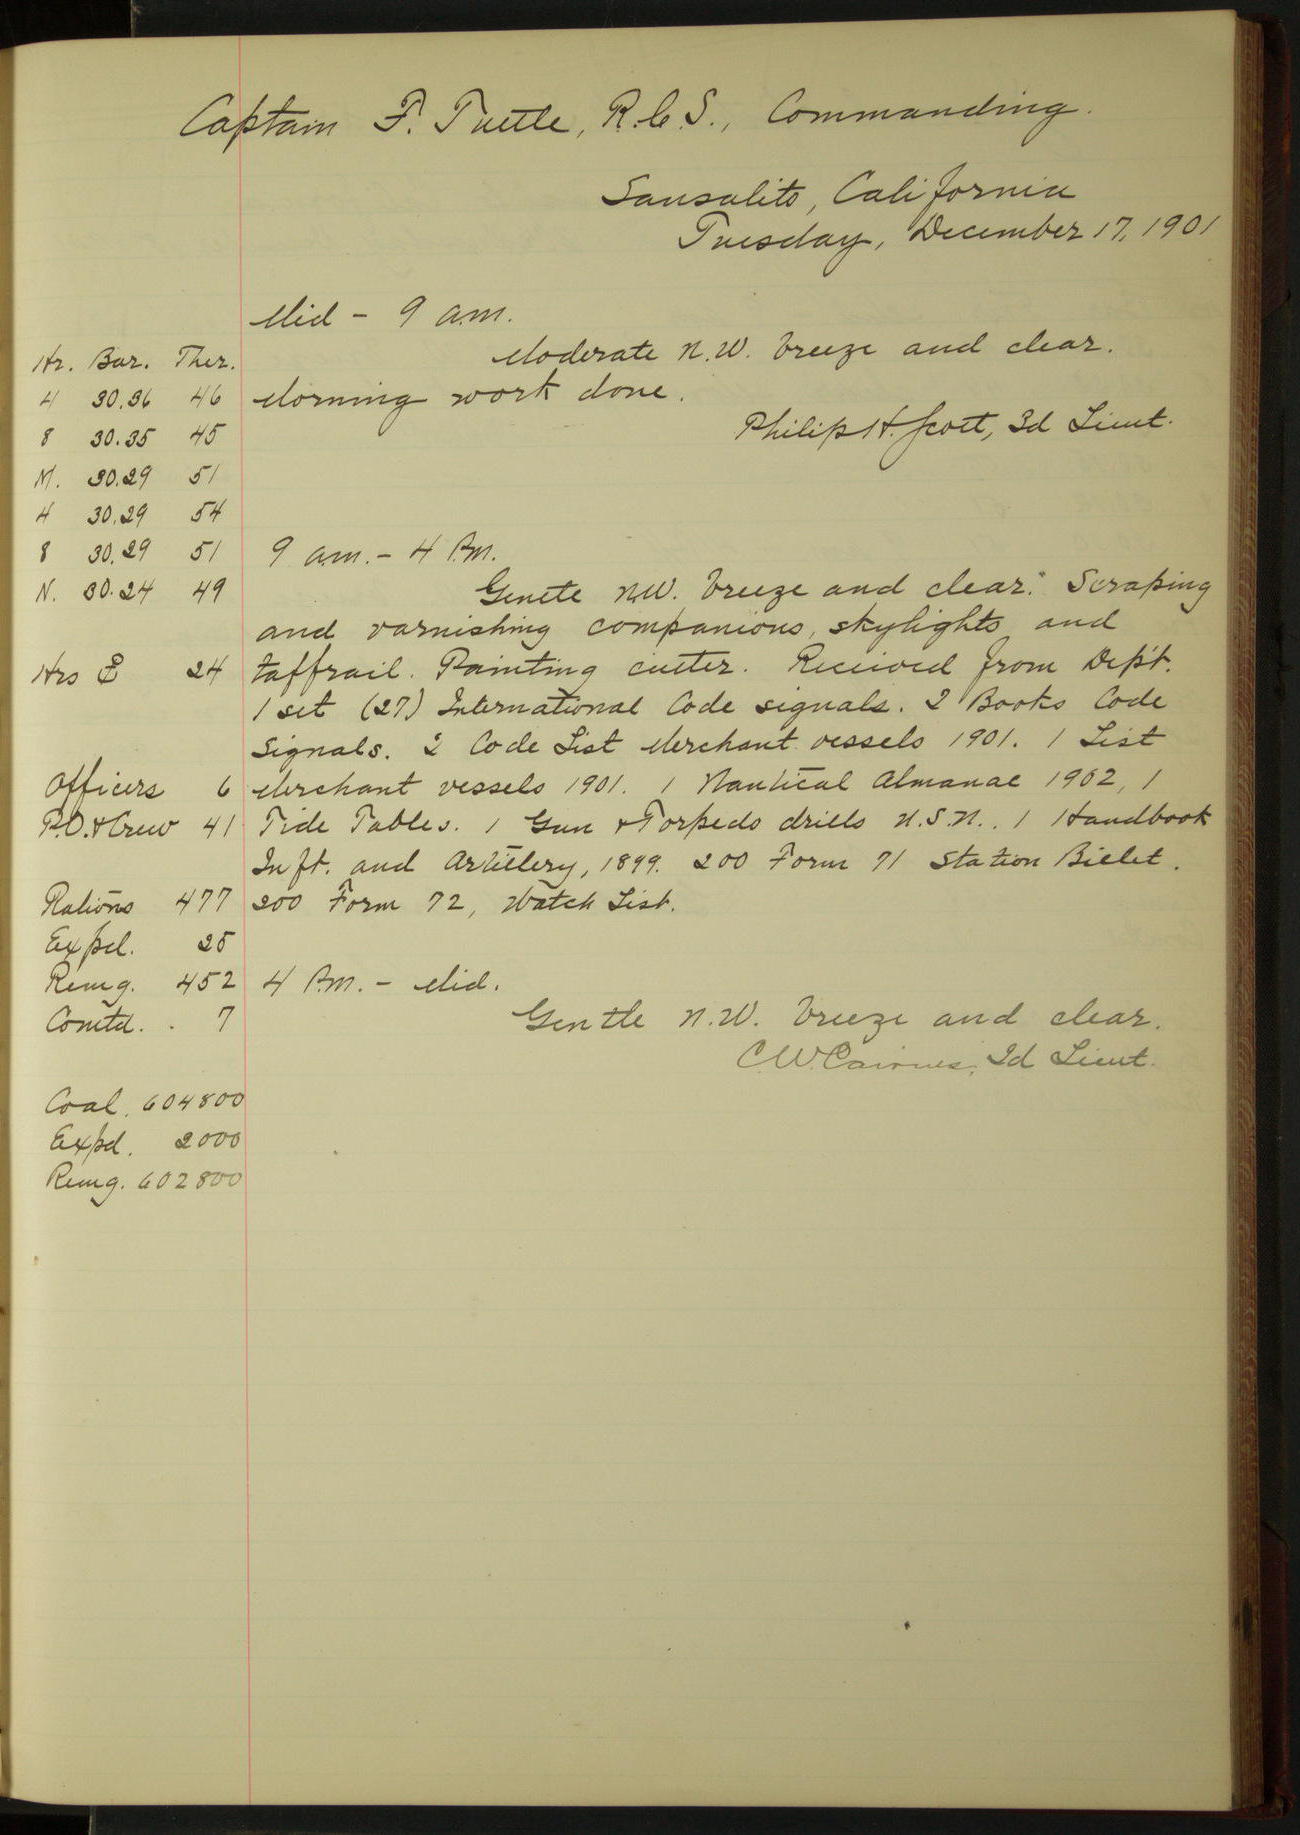 Captain F. Tuttle, R.C.S., Commanding.
Sausalito, California
Tuesday, December 17, 1901
Mid - 9 a.m.
Moderate N.W. breeze and clear.
Morning work done.
Philip H. Scott, 3d Lieut.
Hr. Bar. Ther.
4 30.36 46
8 30.35 45
M. 30.29 51
4 30.29 54
8 30.29 51
N. 30.24 49
Hrs 24
Officers 6
P.O. & Crew 41
Rations 477
Expd. 25
Remg. 452
Comtd. . 7
Coal. 604800
Expd. 2000
Remg. 602800
9 a.m. - 4 P.m.
Gentle N.W. breeze and clear. Scraping
and varnishing companions, skylights and
taffrail. Painting cutter. Received from Dept.
1 set (27) International Code signals. 2 Books Code
Signals. 2 Code List Merchant vessels 1901. 1 List
Merchant vessels 1901. 1 Nautical Almanac 1902, 1
Tide Tables. 1 Gun & Torpedo drills U.S.N.. 1 Handbook
Inft. and Artillery, 1899. 200 Form 71 Station Billet.
200 Form 72, Watch List.
4 P.m. - Mid.
Gentle N.W. breeze and clear.
C.W. Cairnes, 2d Lieut.